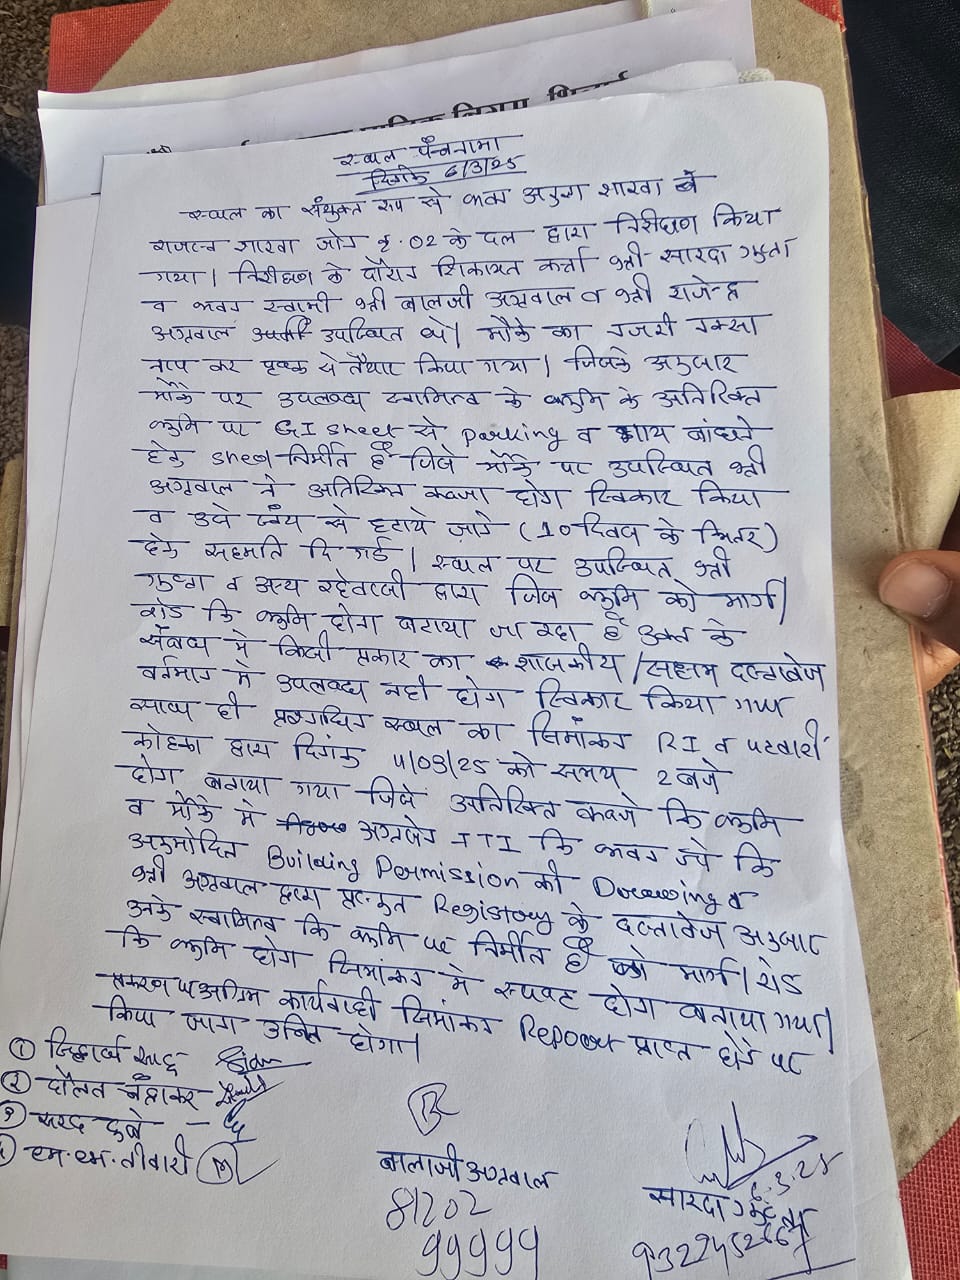 पालिक निगम, भिलाई
स्थल पंचनामा
दिनांक 6/3/25
स्थल का संयुक्त रूप से भवन अनुज्ञा शाखा व
राजस्व शाखा जोन क्र. 02 के दल द्वारा निरीक्षण किया
गया। निरीक्षण के दौरान शिकायत कर्ता श्री सारदा गुप्ता
व भवन स्वामी श्री बालजी अग्रवाल व श्री राजेन्द्र
अग्रवाल उपस्थित थे। मौके का नजरी नक्सा
नाप कर पृथक से तैयार किया गया। जिसके अनुसार
मौके पर उपलब्ध स्वामित्व के भूमि के अतिरिक्त
भूमि पर GI sheet से parking व गाय बांधने
हेतु shed निर्मित है जिसे मौके पर उपस्थित श्री
अग्रवाल ने अतिरिक्त कब्जा होना स्विकार किया
व उसे स्वंय से हटाये जाने (10 दिवस के भितर)
हेतु सहमति दि गई। स्थल पर उपस्थित श्री
गुप्ता व अन्य रहेवासी द्वारा जिस भूमि को मार्ग/
रोड कि भूमि होना बताया जा रहा है उक्त के
संबंध मे किसी प्रकार का शासकीय/सक्षम दस्तावेज
वर्तमान मे उपलब्ध नही होना स्विकार किया गया
साथ ही प्रश्नाधिन स्थल का सिमांकन RI व पटवारी
कोहका द्वारा दिनांक 4/03/25 को समय 2 बजे
होना बताया गया जिसे अतिरिक्त कब्जे कि भूमि
व मौके मे अग्रसेन ITI कि भवन जो कि
अनुमोदित Building Permission की Drawing व
श्री अग्रवाल द्वारा प्रस्तुत Registry के दस्तावेज अनुसार
उनके स्वामित्व कि भूमि पर निर्मित है मार्ग/रोड
कि भूमि होना सिमांकन मे स्पष्ट होना बताया गया।
प्रकरण पर अग्रिम कार्यवाही सिमांकन Report प्राप्त होने पर
किया जाना उचित होगा।
① सिद्धार्थ साहु
② दौलत चंद्राकर
③ सरद दुबे
④ एम.एम. तीवारी
बालाजी अग्रवाल
81202
99999
6.3.25
सारदा गुप्ता